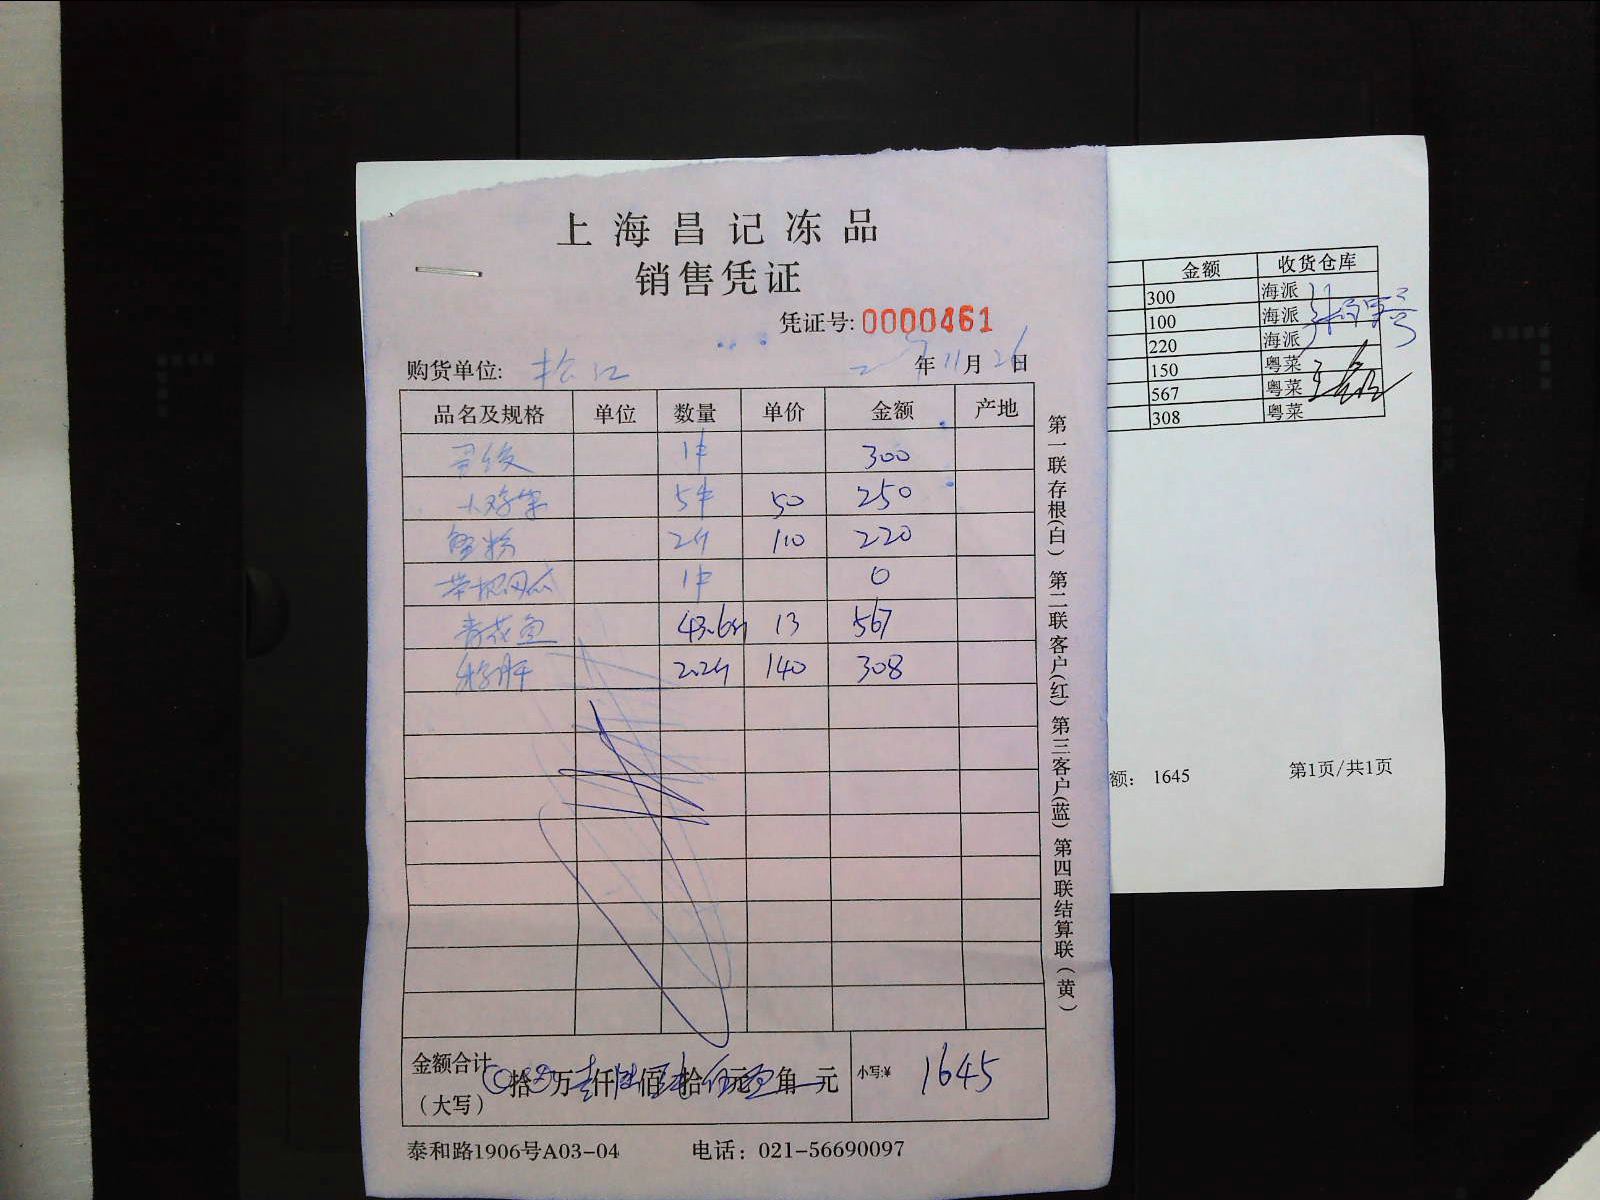 上海昌记冻品
销售凭证
凭证号: 0000461
购货单位: 松江 年 11 月 26 日
品名及规格 单位 数量 单价 金额 产地
1件 300
5件 50 250
蟹粉 2斤 110 220
1件 0
青花鱼 43.6斤 13 567
2.2斤 140 308
金额合计
(大写) 拾 万 壹仟 陆佰 肆拾 伍元 角 元 小写:¥ 1645
泰和路1906号A03-04 电话: 021-56690097
第一联存根(白) 第二联客户(红) 第三客户(蓝) 第四联结算联(黄)
金额 收货仓库
300 海派
100 海派
220 海派
150 粤菜
567 粤菜
308 粤菜
额: 1645 第1页/共1页